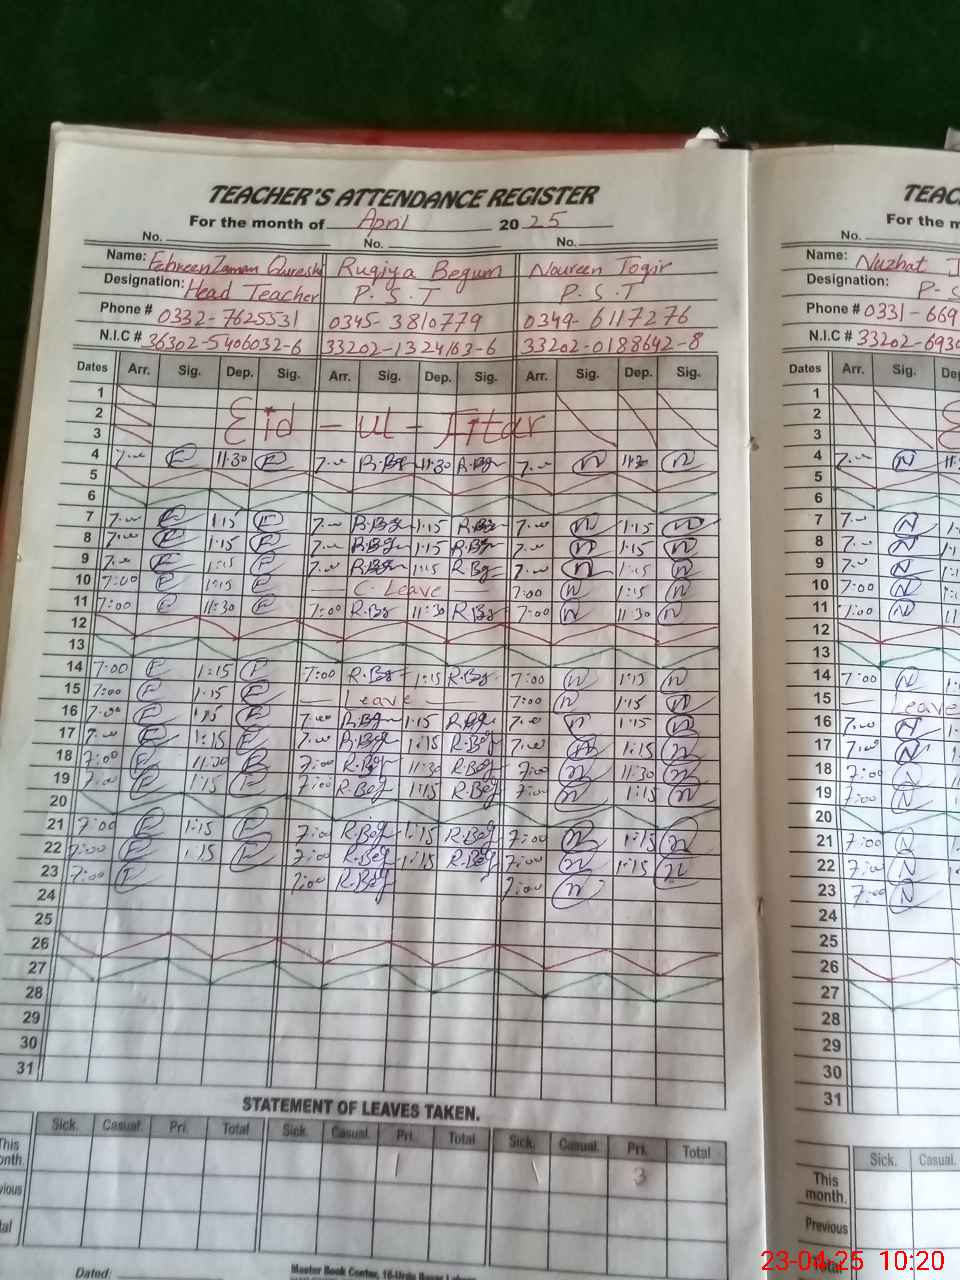 TEACHER'S ATTENDANCE REGISTER
For the month of April 20 25
No. No. No.
Name: Fehreen Zaman Qureshi Ruqiya Begum Noureen
Designation: Head Teacher P.S.T P.S.T
Phone # 0332-7625531 0345-3810779 0349-6117276
N.I.C # 36302-5406032-6 33202-1324163-6 33202-0188642-8
Dates Arr. Sig. Dep. Sig. Arr. Sig. Dep. Sig. Arr. Sig. Dep. Sig.
1
2 Eid - ul - Fitar
3
4 7:00 F 11:30 F 7:00 R.Beg 11:30 R.Beg 7:00 N 11:30 N
5
6
7 7:00 F 1:15 F 7:00 R.Beg 1:15 R.Beg 7:00 N 1:15 N
8 7:00 F 1:15 F 7:00 R.Beg 1:15 R.Beg 7:00 N 1:15 N
9 7:00 F 1:15 F 7:00 R.Beg 1:15 R.Beg 7:00 N 1:15 N
10 7:00 F 1:15 F — C. Leave — 7:00 N 1:15 N
11 7:00 F 11:30 F 7:00 R.Beg 11:30 R.Beg 7:00 N 11:30 N
12
13
14 7:00 F 1:15 F 7:00 R.Beg 1:15 R.Beg 7:00 N 1:15 N
15 7:00 F 1:15 F — Leave — 7:00 N 1:15 N
16 7:00 F 1:15 F 7:00 R.Beg 1:15 R.Beg 7:00 N 1:15 N
17 7:00 F 1:15 F 7:00 R.Beg 1:15 R.Beg 7:00 N 1:15 N
18 7:00 F 11:30 F 7:00 R.Beg 11:30 R.Beg 7:00 N 11:30 N
19 7:00 F 1:15 F 7:00 R.Beg 1:15 R.Beg 7:00 N 1:15 N
20
21 7:00 F 1:15 F 7:00 R.Beg 1:15 R.Beg 7:00 N 1:15 N
22 7:00 F 1:15 F 7:00 R.Beg 1:15 R.Beg 7:00 N 1:15 N
23 7:00 F 7:00 R.Beg 7:00 N
24
25
26
27
28
29
30
31
STATEMENT OF LEAVES TAKEN.
Sick. Casual. Pri. Total Sick. Casual. Pri. Total Sick. Casual. Pri. Total
This onth. 1 1 3
vious
tal
Dated:
Master Book Center, 16-Urdu Bazar Lahore
TEAC
For the m
No.
Name: Nuzhat
Designation: P-S
Phone # 0331-669
N.I.C # 33202-6930
Dates Arr. Sig. Dep
1
2
3
4 7:00 N 11:
5
6
7 7:00 N 1:
8 7:00 N 1:1
9 7:00 N 1:
10 7:00 N 1:
11 7:00 N 11:
12
13
14 7:00 N 1:
15 — Leave
16 7:00 N 1:
17 7:00 N 1:
18 7:00 N
19 7:00 N
20
21 7:00 N
22 7:00 N
23 7:00 N
24
25
26
27
28
29
30
31
Sick. Casual.
This month.
Previous
Total
23-04-25 10:20